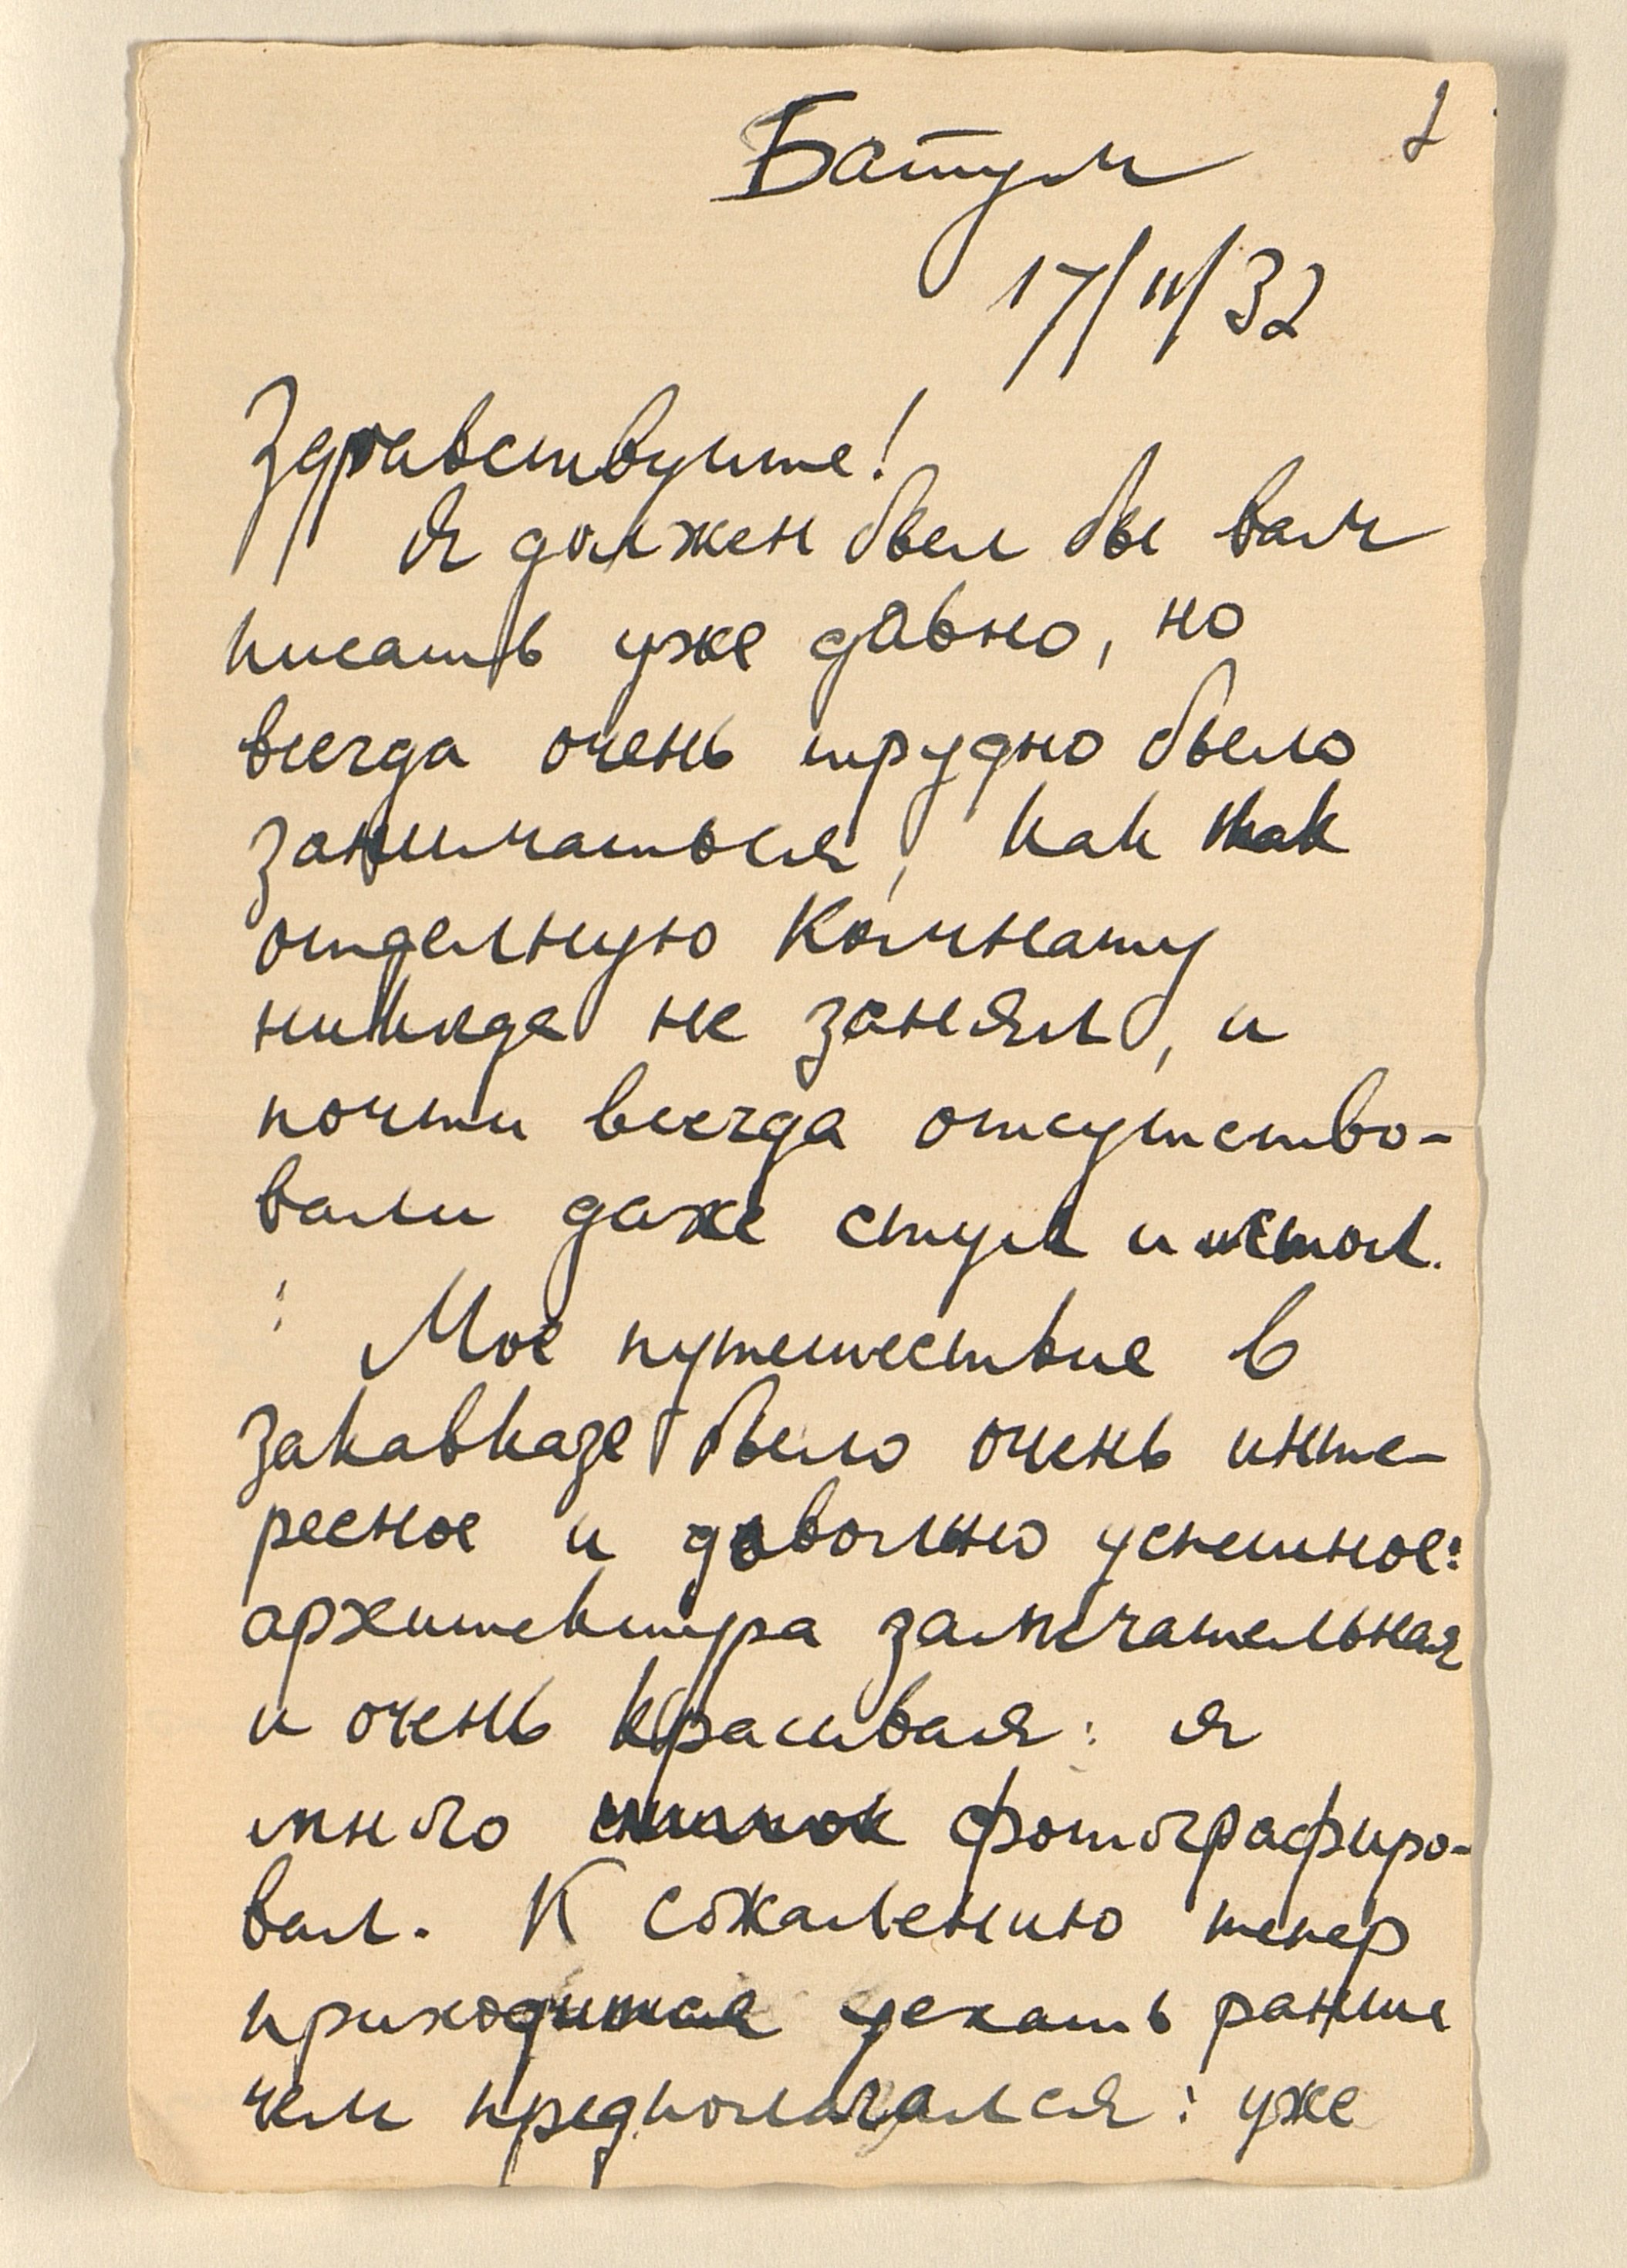 Батум
17/II/32
Здравствуите!
Я должен был бы вам
писать уже давно, но
всегда очень трудно было
заниматься, как так
отделную комнату
никида не занял, и
почти всегда отсутство-
вали даже стул и стол.
Мое путешествие в
закавказе было очень инте-
ресное и доволно успешное:
архитектура замечательная
и очень красивая: я
много фотографиро-
вал. К сожалению тепер
приходится уехать раньше
чем предполагался: уже